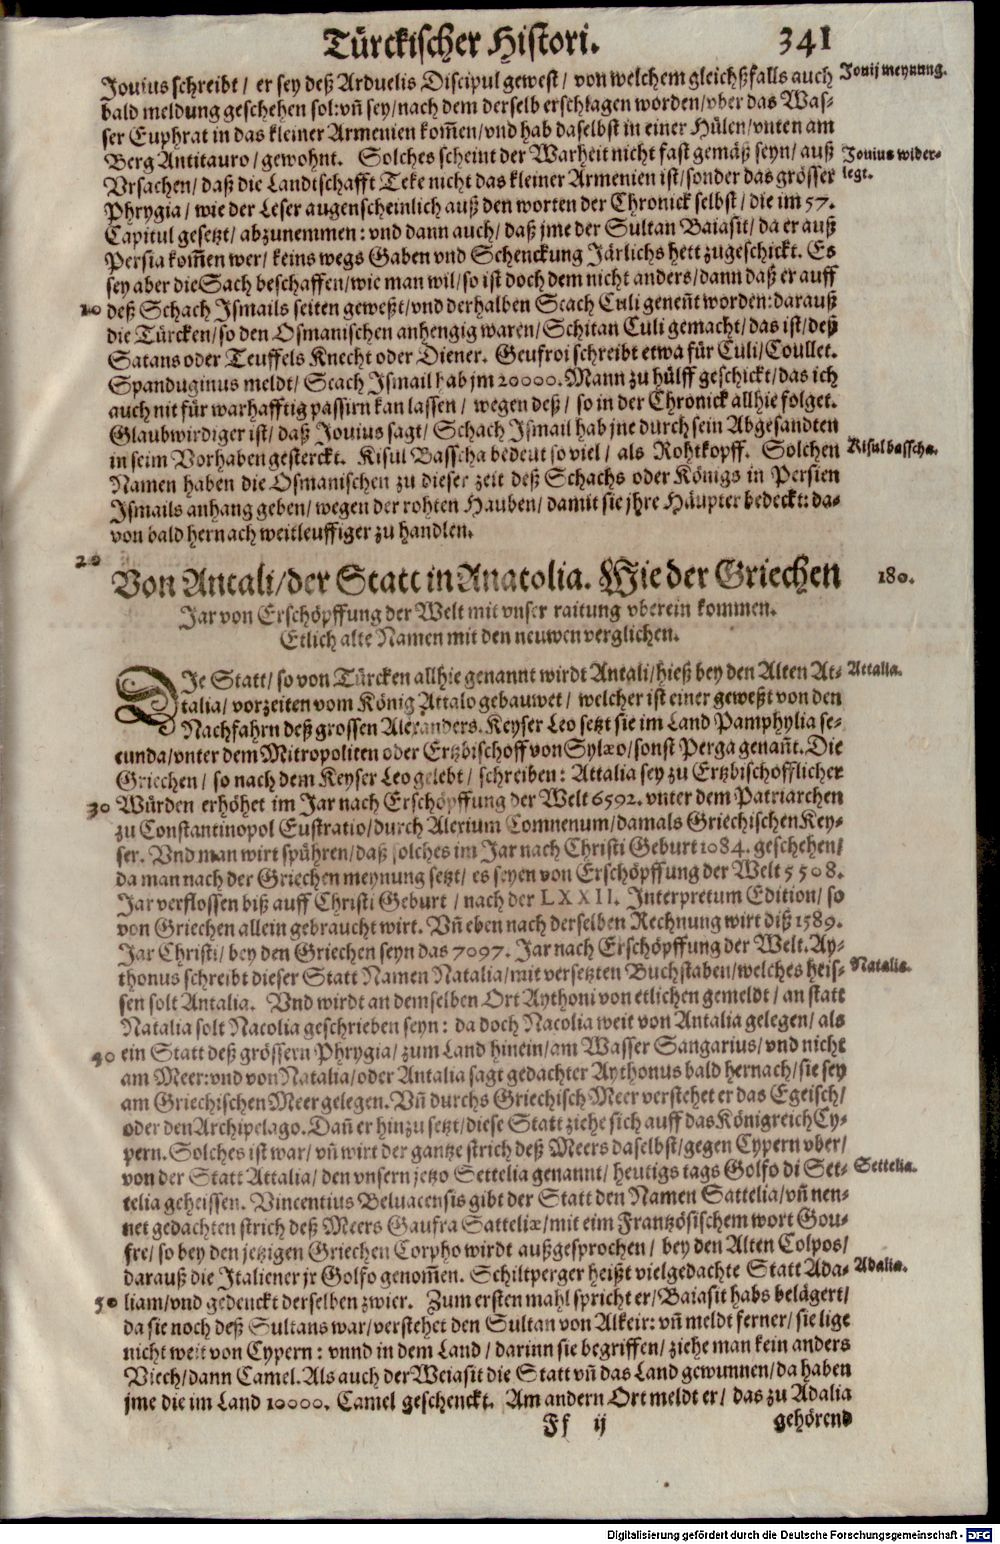 Türckischer Histori. 341
Jouius schreibt / er sey deß Arduelis Discipul gewest / von welchem gleichßfalls auch Jouij meynung.
bald meldung geschehen sol: vñ sey / nach dem derselb erschlagen worden / vber das Was-
ser Euphrat in das kleiner Armenien kom̃en / vnd hab daselbst in einer Hülen / vnten am
Berg Antitauro / gewohnt. Solches scheint der Warheit nicht fast gemäß seyn / auß Jouius wider-
Vrsachen / daß die Landtschafft Teke nicht das kleiner Armenien ist / sonder das grösser legt.
Phrygia / wie der Leser augenscheinlich auß den worten der Chronick selbst / die im 57.
Capitul gesetzt / abzunemmen: vnd dann auch / daß jme der Sultan Baiasit / da er auß
Persia kom̃en wer / keins wegs Gaben vnd Schenckung Järlichs hett zugeschickt. Es
sey aber die Sach beschaffen / wie man wil / so ist doch dem nicht anders / dann daß er auff
10 deß Schach Ismails seiten geweßt / vnd derhalben Scach Culi genen̄t worden: darauß
die Türcken / so den Osmanischen anhengig waren / Schitan Culi gemacht / das ist / deß
Satans oder Teuffels Knecht oder Diener. Geufroi schreibt etwa für Culi / Coullet.
Spanduginus meldt / Scach Ismail hab jm 20000. Mann zu hülff geschickt / das ich
auch nit für warhafftig passirn kan lassen / wegen deß / so in der Chronick allhie folget.
Glaubwirdiger ist / daß Jouius sagt / Schach Ismail hab jne durch sein Abgesandten
in seim Vorhaben gesterckt. Kisul Basscha bedeut so viel / als Rohtkopff. Solchen Kisul basscha.
Namen haben die Osmanischen zu dieser zeit deß Schachs oder Königs in Persien
Ismails anhang geben / wegen der rohten Hauben / damit sie jhre Häupter bedeckt: da-
von bald hernach weitleuffiger zu handlen.
20
Von Antali / der Statt in Anatolia. Wie der Griechen 180.
Jar von Erschöpffung der Welt mit vnser raitung vberein kommen.
Etlich alte Namen mit den neuwen verglichen.
DIe Statt / so von Türcken allhie genannt wirdt Antali / hieß bey den Alten At- Attalia.
talia / vorzeiten vom König Attalo gebauwet / welcher ist einer geweßt von den
Nachfahrn deß grossen Alexanders. Keyser Leo setzt sie im Land Pamphylia se-
cunda / vnter dem Mitropoliten oder Ertzbischoff von Sylæo / sonst Perga genañt. Die
Griechen / so nach dem Keyser Leo gelebt / schreiben: Attalia sey zu Ertzbischofflicher
30 Würden erhöhet im Jar nach Erschöpffung der Welt 6592. vnter dem Patriarchen
zu Constantinopol Eustratio / durch Alexium Comnenum / damals Griechischen Key-
ser. Vnd man wirt spühren / daß solches im Jar nach Christi Geburt 1084. geschehen /
da man nach der Griechen meynung setzt / es seyen von Erschöpffung der Welt 5508.
Jar verflossen biß auff Christi Geburt / nach der LXXII. Interpretum Edition / so
von Griechen allein gebraucht wirt. Vñ eben nach derselben Rechnung wirt diß 1589.
Jar Christi / bey den Griechen seyn das 7097. Jar nach Erschöpffung der Welt. Ay-
thonus schreibt dieser Statt Namen Natalia / mit versetzten Buchstaben / welches heis- Natalia.
sen solt Antalia. Vnd wirdt an demselben Ort Aythoni von etlichen gemeldt / an statt
Natalia solt Nacolia geschrieben seyn: da doch Nacolia weit von Antalia gelegen / als
40 ein Statt deß grössern Phrygia / zum Land hinein / am Wasser Sangarius / vnd nicht
am Meer: vnd von Natalia / oder Antalia sagt gedachter Aythonus bald hernach / sie sey
am Griechischen Meer gelegen. Vñ durchs Griechisch Meer verstehet er das Egeisch /
oder den Archipelago. Dañ er hinzu setzt / diese Statt ziehe sich auff das Königreich Cy-
pern. Solches ist war / vñ wirt der gantze strich deß Meers daselbst / gegen Cypern vber /
von der Statt Attalia / den vnsern jetzo Settelia genannt / heutigs tags Golfo di Set- Settelia.
telia geheissen. Vincentius Beluacensis gibt der Statt den Namen Sattelia / vñ nen-
net gedachten strich deß Meers Gaufra Satteliæ / mit eim Frantzösischem wort Gou-
fre / so bey den jetzigen Griechen Corpho wirdt außgesprochen / bey den Alten Colpos /
darauß die Italiener jr Golfo genom̃en. Schiltperger heißt vielgedachte Statt Ada- Adalia.
50 liam / vnd gedenckt derselben zwier. Zum ersten mahl spricht er / Baiasit habs belägert /
da sie noch deß Sultans war / verstehet den Sultan von Alkeir: vñ meldt ferner / sie lige
nicht weit von Cypern: vnnd in dem Land / darinn sie begriffen / ziehe man kein anders
Viech / dann Camel. Als auch der Weiasit die Statt vñ das Land gewunnen / da haben
jme die im Land 10000. Camel geschenckt. Am andern Ort meldt er / das zu Adalia
Ff ij gehörend
Digitalisierung gefördert durch die Deutsche Forschungsgemeinschaft - DFG